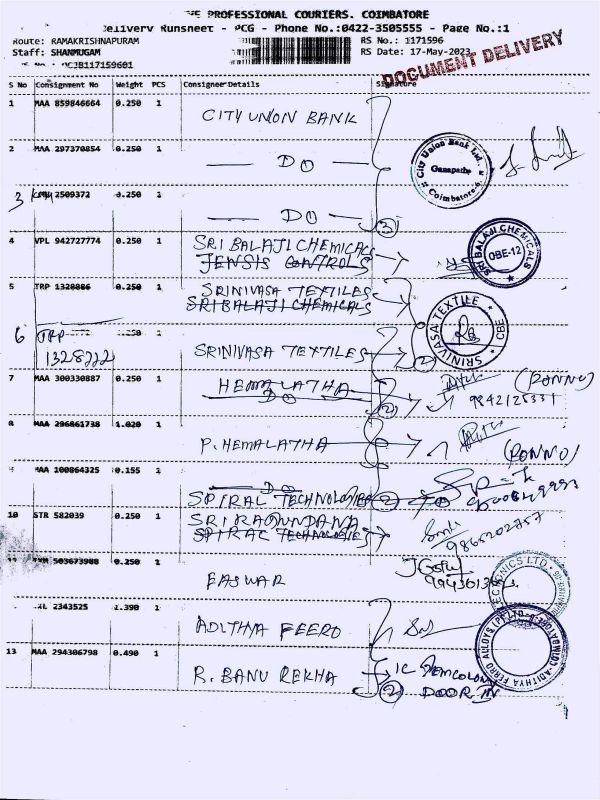 THE PROFESSIONAL COURIERS. COIMBATORE
Delivery Runsheet - PCG - Phone No.:0422-3505555 - Page No.:1
Route: RAMAKRISHNAPURAM
RS No.: 1171596
Staff: SHANMUGAM
RS Date: 17-May-2023
DOCUMENT DELIVERY
S No Consignment No Weight PCS Consignee Details Signature
1 MAA 859846664 0.250 1 CITY UNION BANK
2 MAA 297370854 0.250 1 — DO —
City Union Bank Ltd.
Ganapathy
Coimbatore-6.
3 2509372 0.250 1 — DO — 3
4 VPL 942727774 0.250 1 SRI BALAJI CHEMICALS
JENSIS CONTROLS
SRI BALAJI CHEMICALS
CBE-12
5 TRP 1328886 0.250 1 SRINIVASA TEXTILES
SRI BALAJI CHEMICALS
SRINIVASA TEXTILE
CBE
6 TRP 1328222 1 SRINIVASA TEXTILES 2
7 MAA 300330887 0.250 1 HEMALATHA
DO 2 (PONNU)
9842125331
8 MAA 296861738 1.020 1 P. HEMALATHA (PONNU)
MAA 100864325 0.155 1 — DO —
SPIRAL TECHNOLOGIES
10 STR 582039 0.250 1 SRI RAGUNDANA
SPIRAL TECHNOLOGIES
9865202757
503673988 0.250 1 EASWAR
2343525 1.390 1 ADITHYA FEERO
ADITHYA FERRO ALLOYS (P) LTD
13 MAA 294306798 0.490 1 R. BANU REKHA 2
DOOR IN